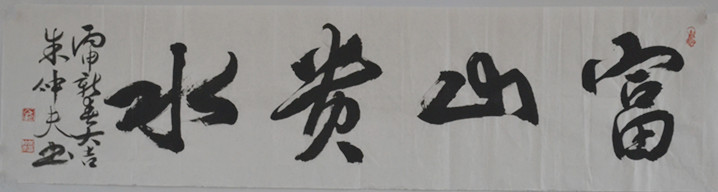 富山贵水
丙申新春大吉
朱仲夫书